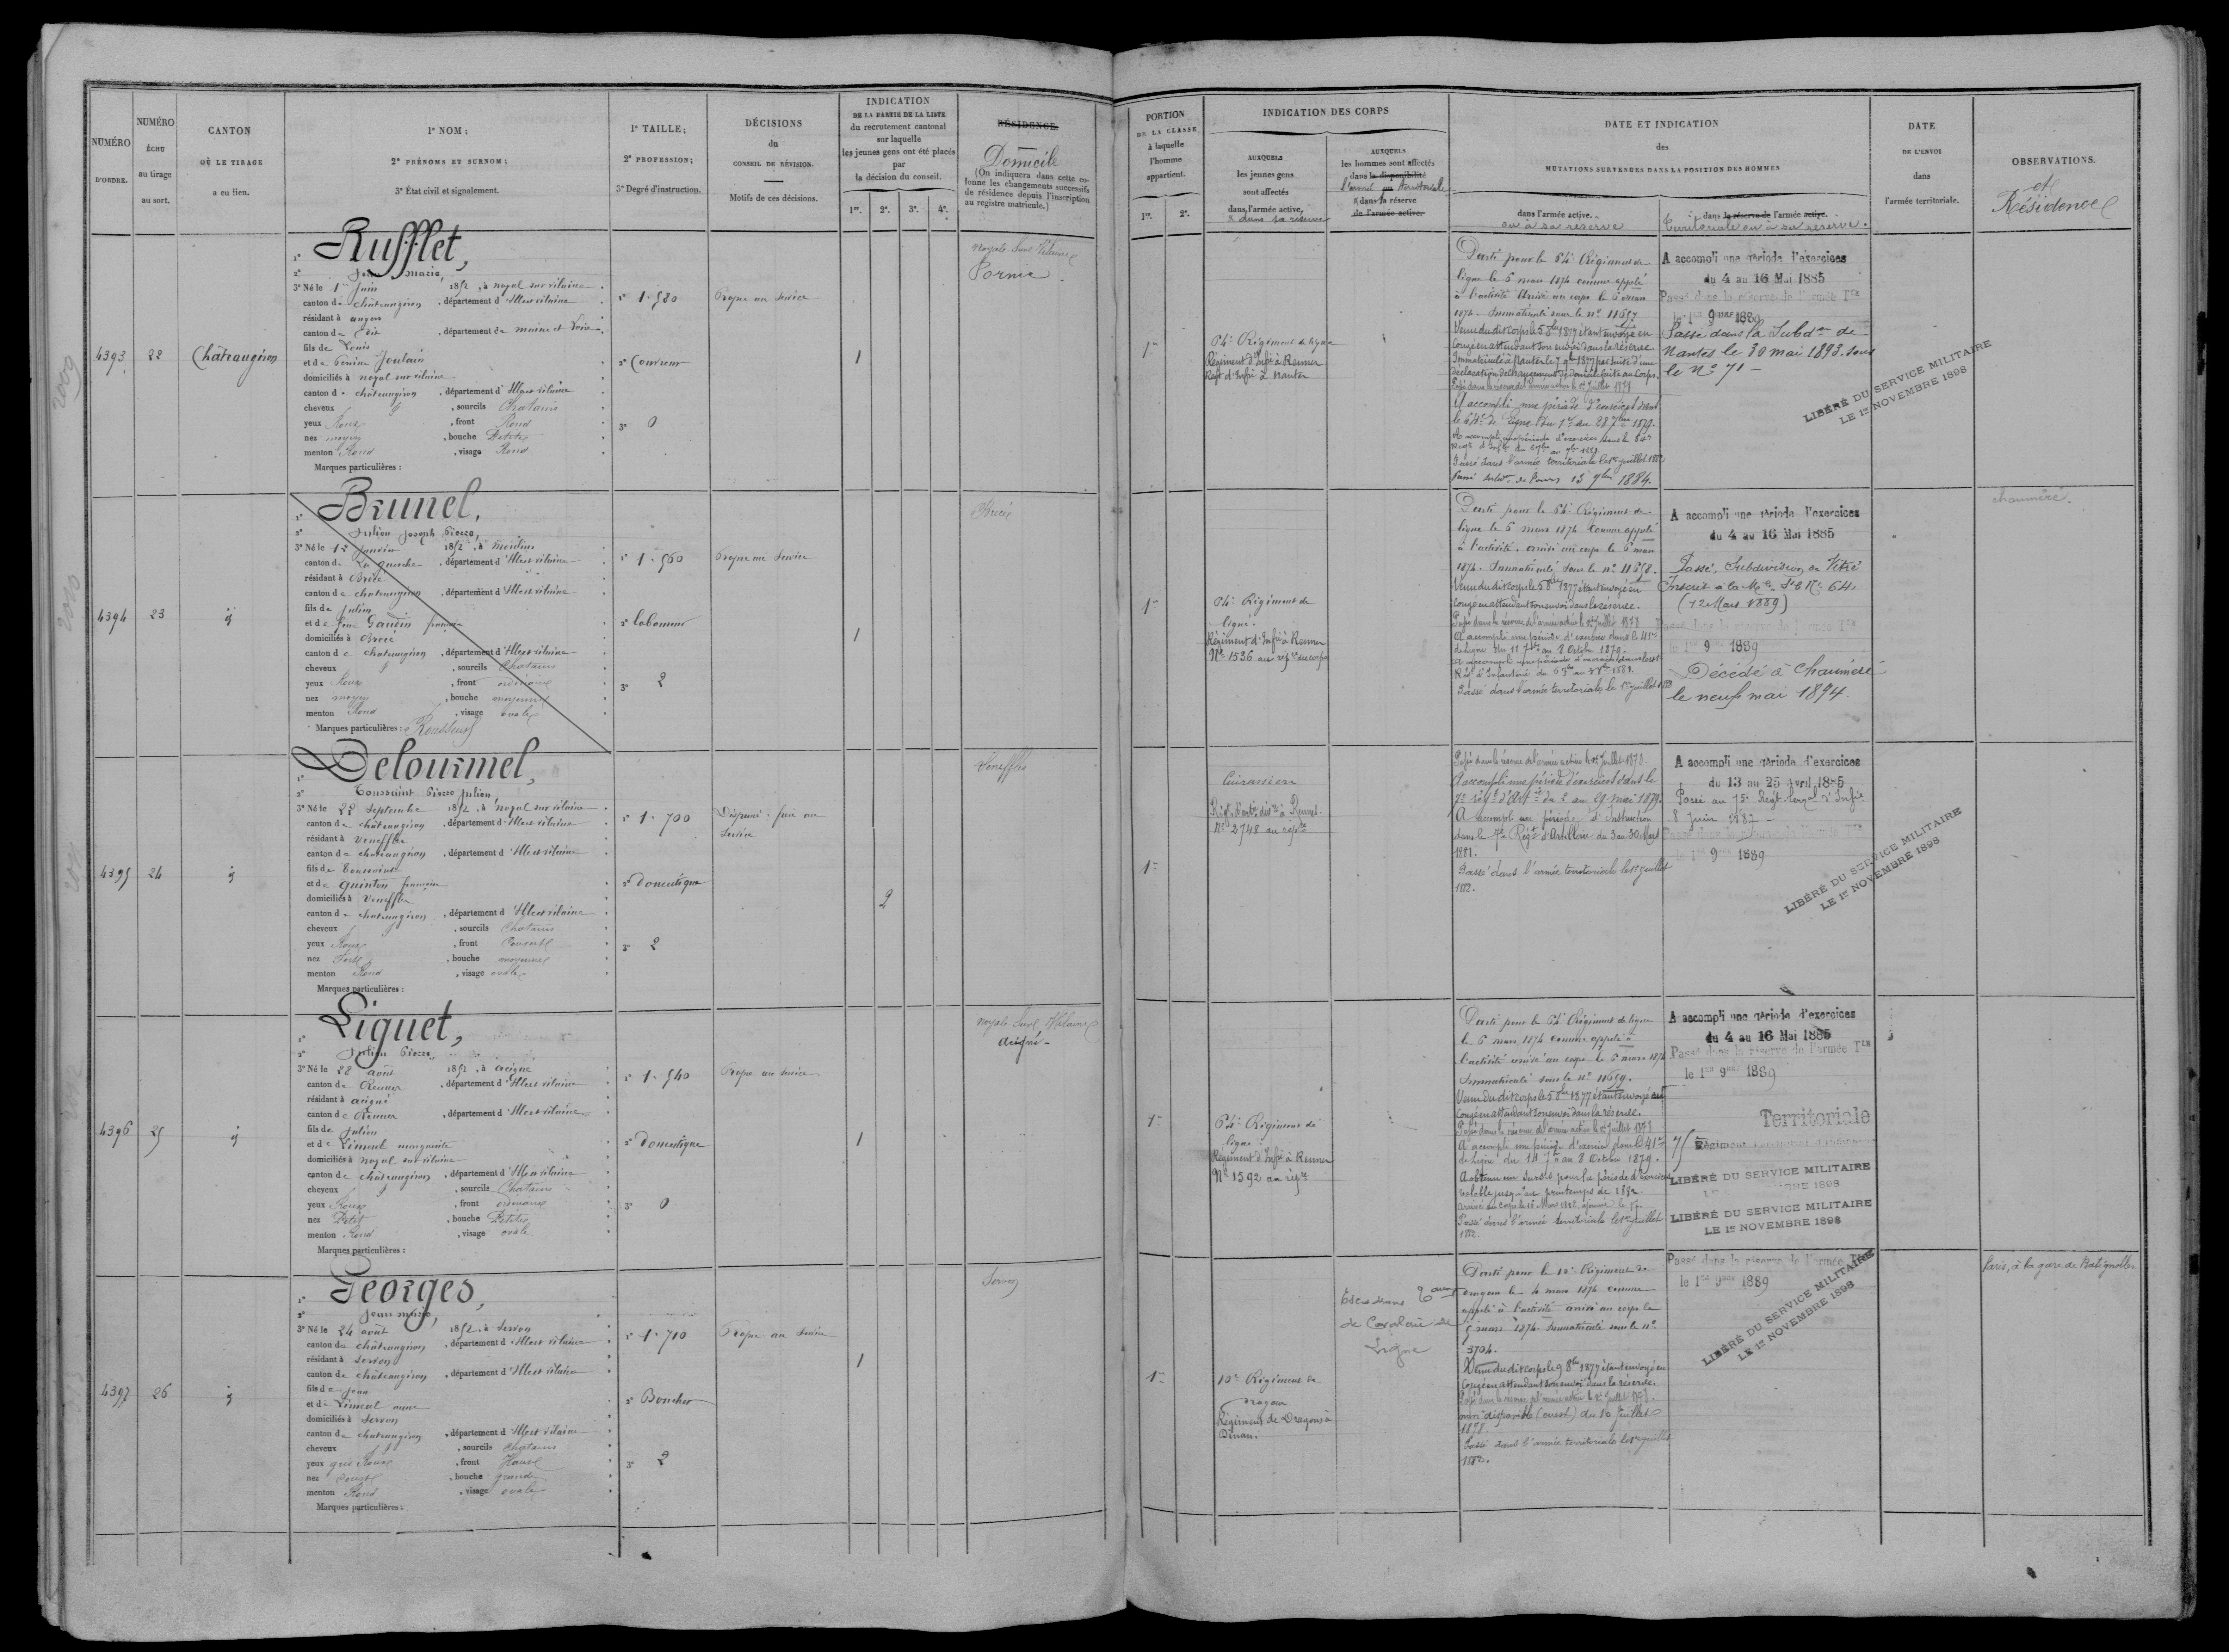 NUMÉRO
D'ORDRE.
NUMÉRO
ÉCHU
au tirage
au sort.
CANTON
OÙ LE TIRAGE
a eu lieu.
1º NOM;
2º PRÉNOMS ET SURNOM;
3º État civil et signalement.
1º TAILLE;
2º PROFESSION;
3º Degré d'instruction.
DÉCISIONS
du
CONSEIL DE RÉVISION.
Motifs de ces décisions.
INDICATION
DE LA PARTIE DE LA LISTE
du recrutement cantonal
sur laquelle
les jeunes gens ont été placés
par
la décision du conseil.
1re. 2e. 3e. 4e.
RÉSIDENCE.
Domicile
(On indiquera dans cette colonne
les changements successifs
de résidence depuis l'inscription
au registre matricule.)
4393
22
Châteaugiron
Rufflet,
Jean Marie,
3º Né le 1er Juin 1852, à noyal sur vilaine
canton de châteaugiron, département d'Ille et vilaine
résidant à angers
canton de dit, département de maine et Loire
fils de Louis
et de Genin Joulain
domiciliés à noyal sur vilaine
canton de châteaugiron, département d'Ille et vilaine
cheveux d, sourcils Chatains
yeux Roux, front Rond
nez moyen, bouche Petite
menton Rond, visage Rond
Marques particulières :
1º 1.580
2º Couvreur
3º 0
Propre au service
1
Noyal sur Vilaine
Pornic
4394
23
id
Brunel,
Julien Joseph Pierre,
3º Né le 12 Janvier 1852, à moulins
canton de La guerche, département d'Ille et vilaine
résidant à Brécé
canton de chateaugiron, département d'Ille et vilaine
fils de Julien
et de feue Gaudin françoise
domiciliés à Brécé
canton de chateaugiron, département d'Ille et vilaine
cheveux d, sourcils Chatains
yeux Roux, front ordinaire
nez moyen, bouche moyenne
menton Rond, visage ovale
Marques particulières : Rousseurs
1º 1.560
2º laboureur
3º 2
Propre au service
1
Brécé
4395
24
id
Delourmel,
Toussaint Pierre Julien,
3º Né le 22 Septembre 1852, à noyal sur vilaine
canton de châteaugiron, département d'Ille et vilaine
résidant à Veneffles
canton de chateaugiron, département d'Ille et vilaine
fils de Toussaint
et de Quinton françoise
domiciliés à Veneffles
canton de chateaugiron, département d'Ille et vilaine
cheveux d, sourcils Chatains
yeux Roux, front Couvert
nez Fort, bouche moyenne
menton Rond, visage ovale
Marques particulières :
1º 1.700
2º Domestique
3º 2
Dispensé
service
2
Veneffles
4396
25
id
Liguet,
Julien Pierre,
3º Né le 28 août 1852, à acigné
canton de Rennes, département d'Ille et vilaine
résidant à acigné
canton de Rennes, département d'Ille et vilaine
fils de Julien
et de Simeul marguerite
domiciliés à noyal sur vilaine
canton de châteaugiron, département d'Ille et vilaine
cheveux d, sourcils Chatains
yeux Roux, front ordinaire
nez Petit, bouche Petite
menton Rond, visage ovale
Marques particulières :
1º 1.540
2º Domestique
3º 0
Propre au service
1
Noyal sur Vilaine
Acigné
4397
26
id
Georges,
Jean Marie,
3º Né le 24 août 1852, à Servon
canton de châteaugiron, département d'Ille et vilaine
résidant à Servon
canton de châteaugiron, département d'Ille et vilaine
fils de Jean
et de Simeul anne
domiciliés à Servon
canton de chateaugiron, département d'Ille et vilaine
cheveux d, sourcils Chatains
yeux gris Roux, front Haut
nez Court, bouche grande
menton Rond, visage ovale
Marques particulières :
1º 1.710
2º Boucher
3º 2
Propre au service
1
Servon
PORTION
DE LA CLASSE
à laquelle
l'homme
appartient.
1re. 2e.
INDICATION DES CORPS
AUXQUELS
les jeunes gens
sont affectés
dans l'armée active,
& dans sa réserve
AUXQUELS
les hommes sont affectés
dans la disponibilité
l'armée territoriale
& dans sa réserve
de l'armée active.
DATE ET INDICATION
des
MUTATIONS SURVENUES DANS LA POSITION DES HOMMES
dans l'armée active.
ou à sa réserve
dans la réserve de l'armée active.
Territoriale ou à sa réserve.
DATE
DE L'ENVOI
dans
l'armée territoriale.
OBSERVATIONS.
et
Résidence
1re
64e Régiment de ligne
Régiment d'Infie à Rennes
Régt d'Infie à Nantes
Parti pour le 64e Régiment de
ligne le 6 mars 1874 comme appelé
à l'activité. Arrivé au corps le 6 mars
1874. Immatriculé sous le nº 11657
Venu du dit corps le 5 8bre 1877 étant envoyé en
congé en attendant son envoi dans la réserve
Immatriculé à Nantes le 7 9bre 1877 par suite d'une
déclaration de changement de domicile faite au Corps.
Passé dans la réserve de l'armée active le 1er Juillet 1878
A accompli une période d'exercices dans
le 64e de Ligne du 1er au 28 7bre 1879.
Passé dans l'armée territoriale le 1er juillet 1882
A accompli une période d'exercices
du 4 au 16 Mai 1885
Passé dans la réserve de l'armée Tle
le 1er 9bre 1889
Passé dans la Subdon de
Nantes le 30 mai 1893 sous
le Nº 71
LIBÉRÉ DU SERVICE MILITAIRE
LE 1er NOVEMBRE 1898
1re
64e Régiment de
ligne.
Régiment d'Infie à Rennes
Nº 1536 au rép. du corps
Parti pour le 64e Régiment de
ligne le 6 mars 1874 comme appelé
à l'activité. arrivé au corps le 6 mars
1874. Immatriculé sous le nº 11658.
Venu du dit corps le 5 8bre 1877 étant envoyé en
congé en attendant son envoi dans la réserve.
Passé dans la réserve de l'armée active le 1er Juillet 1878
A accompli une période d'exercices dans le 41e
de Ligne du 11 7bre au 8 Octobre 1879.
Passé dans l'armée territoriale le 1er juillet 1882
A accompli une période d'exercices
du 4 au 16 Mai 1885
Passé, Subdivision de Vitré
Inscrit à la Mle Nº 64
(12 Mars 1889)
Passé dans la réserve de l'armée Tle
le 1er 9bre 1889
Décédé à Chaumeré
le neuf mai 1894.
chaumeré.
1re
Cuirassiers
Régt d'artie à Rennes
Nº 2748 au répre
Passé dans la réserve de l'armée active le 1er Juillet 1878.
A accompli une période d'exercices dans le
7e régt d'Artie du 2 au 29 mai 1879.
A accompli une période d'Instruction
dans le 7e Régt d'Artillerie du 3 au 30 Mars
1881.
Passé dans l'armée territoriale le 1er juillet
1882.
A accompli une période d'exercices
du 13 au 25 Avril 1885
Passé au 75e Régt terral d'Infie
8 Juin 1887
Passé dans la réserve de l'armée Tle
le 1er 9bre 1889
LIBÉRÉ DU SERVICE MILITAIRE
LE 1er NOVEMBRE 1898
1re
64e Régiment de
ligne.
Régiment d'Infie à Rennes
Nº 1592 au répre
Parti pour le 64e Régiment de ligne
le 6 mars 1874 comme appelé à
l'activité arrivé au corps le 6 mars 1874
Immatriculé sous le nº 11659.
Venu du dit corps le 5 8bre 1877 étant envoyé en
congé en attendant son envoi dans la réserve.
Passé dans la réserve de l'armée active le 1er Juillet 1878
A accompli une période d'exercices dans le 41e
de Ligne du 11 7bre au 8 Octobre 1879.
A obtenu un sursis pour la période d'exercices
valable jusqu'au printemps de 1882.
Passé dans l'armée territoriale le 1er juillet
1882.
A accompli une période d'exercices
du 4 au 16 Mai 1885
Passé dans la réserve de l'armée Tle
le 1er 9bre 1889
Territoriale
75 Régiment territorial d'infanterie
LIBÉRÉ DU SERVICE MILITAIRE
LE 1er NOVEMBRE 1898
LIBÉRÉ DU SERVICE MILITAIRE
LE 1er NOVEMBRE 1898
1re
10e Régiment de
dragons
Régiment de Dragons à
Dinan.
Escadrons
de Cavalerie de
Ligne
Parti pour le 10e Régiment de
dragons le 4 mars 1874 comme
appelé à l'activité arrivé au corps le
5 mars 1874. Immatriculé sous le nº
3704.
Venu du dit corps le 9 8bre 1877 étant envoyé en
congé en attendant son envoi dans la réserve.
Passé dans la réserve de l'armée active le 1er Juillet 1878.
non disponible (ouest) du 10 Juillet
1878.
Passé dans l'armée territoriale le 1er juillet
1882.
Passé dans la réserve de l'armée Tle
le 1er 9bre 1889
LIBÉRÉ DU SERVICE MILITAIRE
LE 1er NOVEMBRE 1898
Paris, à la gare de Batignolles